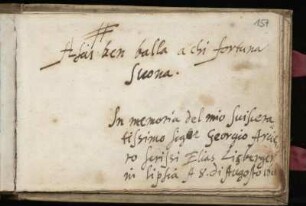 157
Assai ben balla a chi fortuna
suona.
In memoria del mio suisera
tissimo Sigr Georgio
ro scrissi Elias
in lipsia A 8. di Augosto